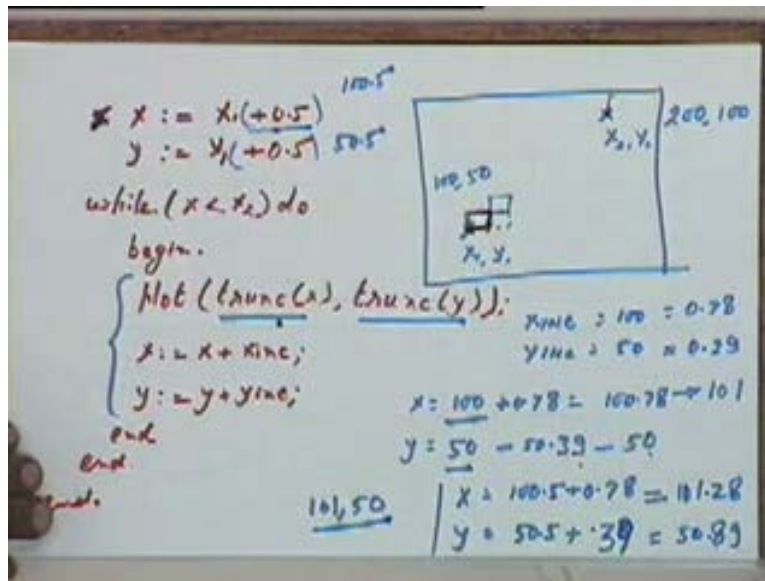 x := x₁(+0.5) 100.5
y := y₁(+0.5) 50.5
while (x < x₂) do
begin.
Plot (trunc(x), trunc(y));
x := x + xinc;
y := y + yinc;
end
end.
end.
101,50
200, 100
x₂, y₂
100, 50
x₁, y₁
xinc = 100 = 0.78
yinc = 50 = 0.39
x = 100 + 0.78 = 100.78 → 101
y = 50 - 50.39 - 50
x = 100.5 + 0.78 = 101.28
y = 50.5 + .39 = 50.89